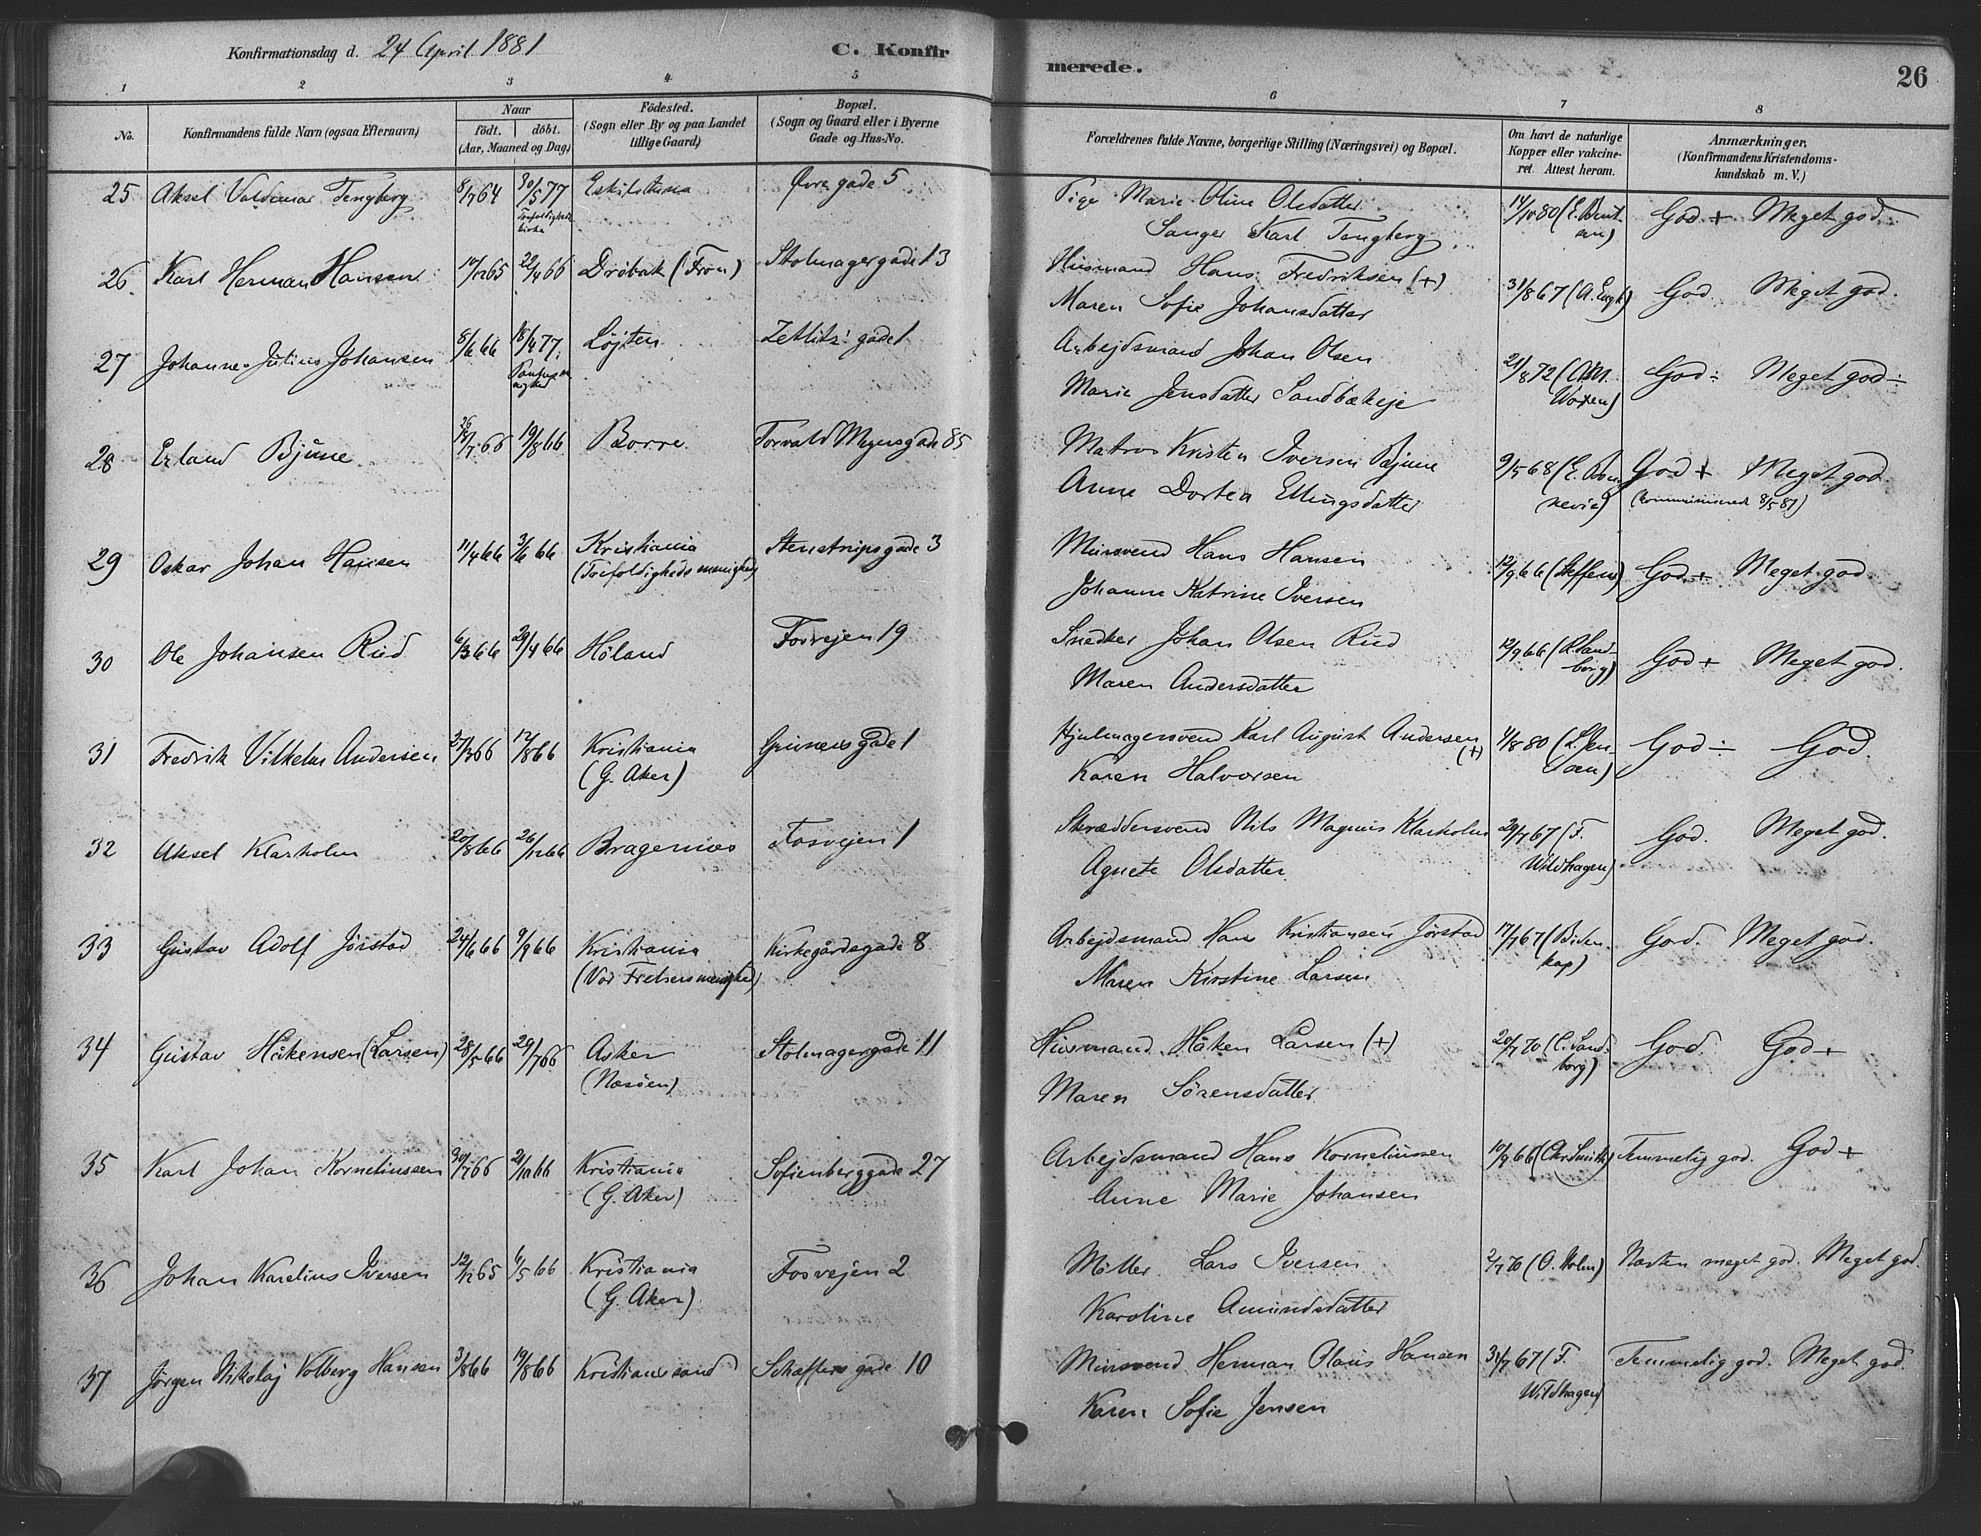 Konfirmationsdag d. 24 April 1881
C. Konfirmerede.
26
1 2 3 4 5 6 7 8
No.
Konfirmandens fulde Navn (ogsaa Efternavn)
Naar
födt. döbt.
(Aar, Maaned og Dag)
Födested.
(Sogn eller By og paa Landet
tillige Gaard)
Bopæl.
(Sogn og Gaard eller i Byerne
Gade og Hus-No.
Forældrenes fulde Navne, borgerlige Stilling (Næringsvei) og Bopæl.
Om havt de naturlige
Kopper eller vakcine-
ret. Attest herom.
Anmærkninger.
(Konfirmandens Kristendoms-
kundskab m. V.)
25 Aksel Valdemar Tengberg 8/7 64 30/5 77 Eskilstuna Øvre gade 5 Pige Marie Oline Olsdatter 14/10 80 God + Meget god.
Trefoldigheds
kirke
Sanger Karl Tengberg
26 Karl Herman Hansen 10/12 65 22/4 66 Dröbak (Fron) Stolmagergade 13 Husmand Hans Fredriksen (+) 31/8 67 God. Meget god.
Maren Sofie Johansdatter
27 Johannes Julius Johansen 8/6 66 18/4 77 Løjten Zetlitz' gade 1 Arbejdsmand Johan Olsen 21/8 72 God ÷ Meget god ÷
Marie Jensdatter Sandbækeje
28 Erland Bjune 66 19/8 66 Borre Torvald Meyersgade 85 Matros Kristen Iversen Bjune 9/5 68 God + Meget god
(kommuniserede 8/5 81)
Anne Dortea Ellingsdatter
29 Oskar Johan Hansen 11/4 66 3/6 66 Kristiania Stenstrupsgade 3 Mursvend Hans Hansen 12/9 66 (Steffens) God + Meget god
(Trefoldighedsmenighed)
Johanne Katrine Iversen
30 Ole Johansen Rud 6/3 66 29/4 66 Høland Fosvejen 19 Snedker Johan Olsen Rud 12/9 66 (O. Sand-
berg) God + Meget god.
Maren Andersdatter
31 Fredrik Vilhelm Andersen 27/3 66 12/8 66 Kristiania Grünersgade 1 Hjulmagersvend Karl August Andersen (+) 4/8 80 (L. Jen-
sen) God ÷ God.
(G. Aker)
Karen Halvorsen
32 Aksel Klarholm 20/8 66 26/12 66 Bragernæs Fosvejen 1 Skræddersvend Nils Magnus Klarholm 29/7 67 (F.
Wildhagen) God. Meget god.
Agnete Olsdatter
33 Gustav Adolf Jørstad 24/6 66 9/9 66 Kristiania Kirkegårdsgade 8 Arbejdsmand Hans Kristiansen Jørstad 17/7 67 (Biden-
kap) God. Meget god.
(Vor Frelsers menighed)
Maren Kirstine Larsen
34 Gustav Håkensen (Larsen) 28/5 66 29/7 66 Asker Stolmagergade 11 Husmand Håken Larsen (+) 20/7 70 (C. Sand-
borg) God. God +
(Nesöen)
Maren Sörensdatter
35 Karl Johan Kornelinssen 30/7 66 21/10 66 Kristiania Sofienberggade 27 Arbejdsmand Hans Korneliussen 10/9 66 (Chr Smith) Temmelig god. God +
(G. Aker)
Anne Marie Johansen
36 Johan Karelius Iversen 12/12 65 6/5 66 Kristiania Fosvejen 2 Möller Lars Iversen 2/7 70 (O. Holm) Næsten meget god. Meget god.
(G. Aker)
Karoline Amundsdatter
37 Jørgen Nikolaj Volberg Hansen 3/8 66 19/8 66 Kristianssand Schaffersgade 10 Mursvend Herman Olaus Hansen 31/7 67 (F.
Wildhagen) Temmelig god. Meget god.
Karen Sofie Jensen